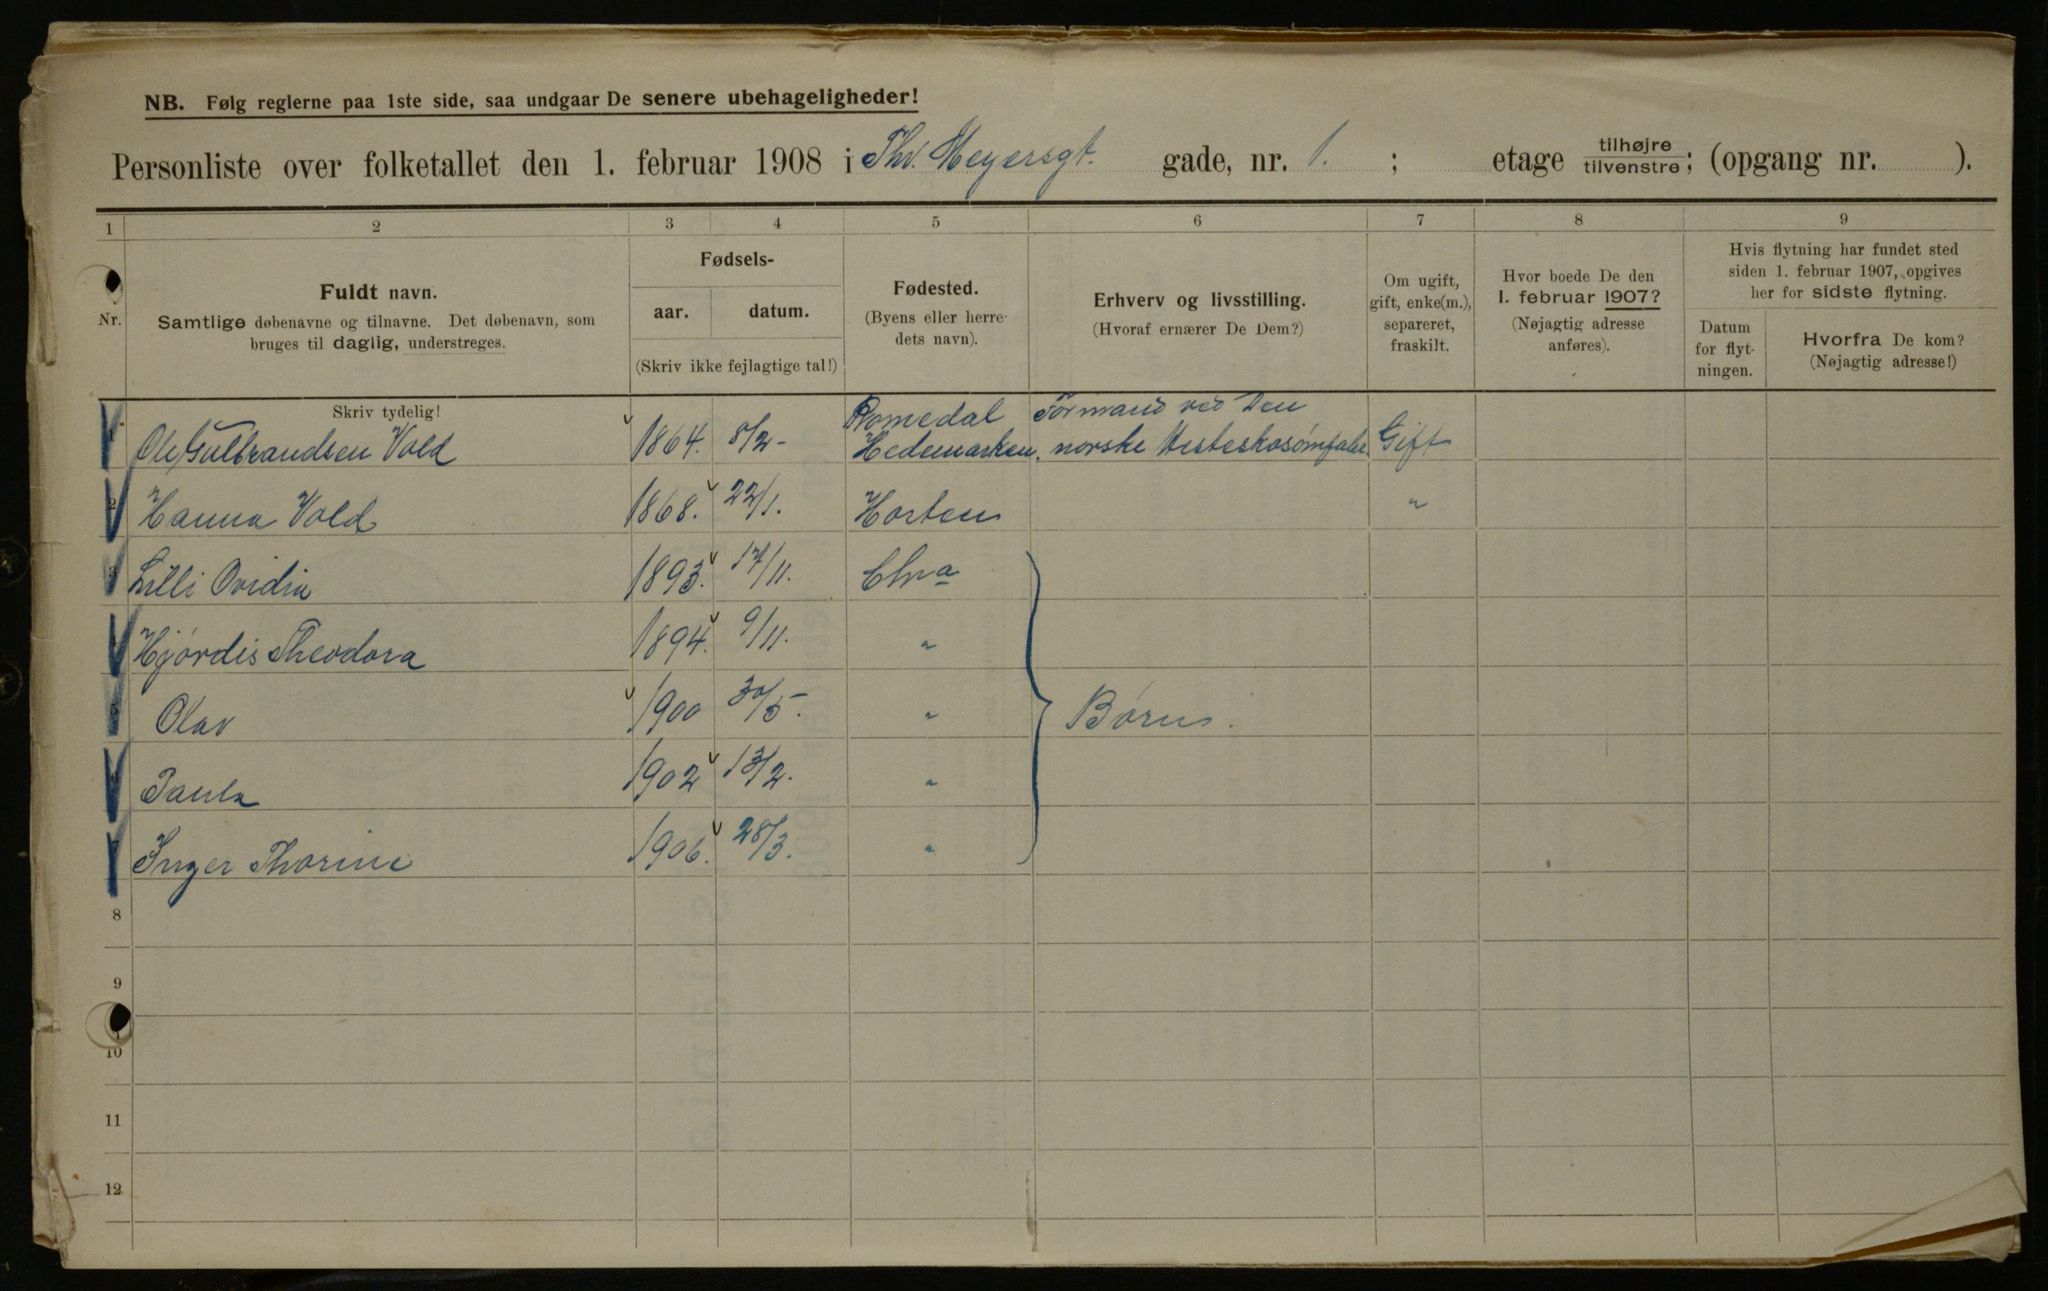 NB. Følg reglerne paa 1ste side, saa undgaar De senere ubehageligheder!
Personliste over folketallet den 1. februar 1908 i Thv. Meyersgt. gade, nr. 1. ; etage tilhøjre tilvenstre; (opgang nr. ).
1 2 3 4 5 6 7 8 9
Nr.
Fuldt navn.
Samtlige døbenavne og tilnavne. Det døbenavn, som
bruges til daglig, understreges.
Skriv tydelig!
Fødsels-
aar. datum.
(Skriv ikke fejlagtige tal!)
Fødested.
(Byens eller herre-
dets navn).
Erhverv og livsstilling.
(Hvoraf ernærer De Dem?)
Om ugift,
gift, enke(m.),
separeret,
fraskilt.
Hvor boede De den
1. februar 1907?
(Nøjagtig adresse
anføres).
Hvis flytning har fundet sted
siden 1. februar 1907, opgives
her for sidste flytning.
Datum
for flyt-
ningen.
Hvorfra De kom?
(Nøjagtig adresse!)
Romedal Formand ved Den
1 Ole Gulbrandsen Vold 1864. 8/2- Hedemarken. norske Hesteskosømfabr. Gift
2 Hanna Vold 1868. 22/1. Horten "
3 Lilli Ovidia 1893. 17/11. Chra
4 Hjördis Theodora 1894. 9/11. "
5 Olav 1900 30/5-. " Børn.
6 Paula 1902 13/2. "
7 Inger Thorine 1906. 28/3. "
8
9
10
11
12